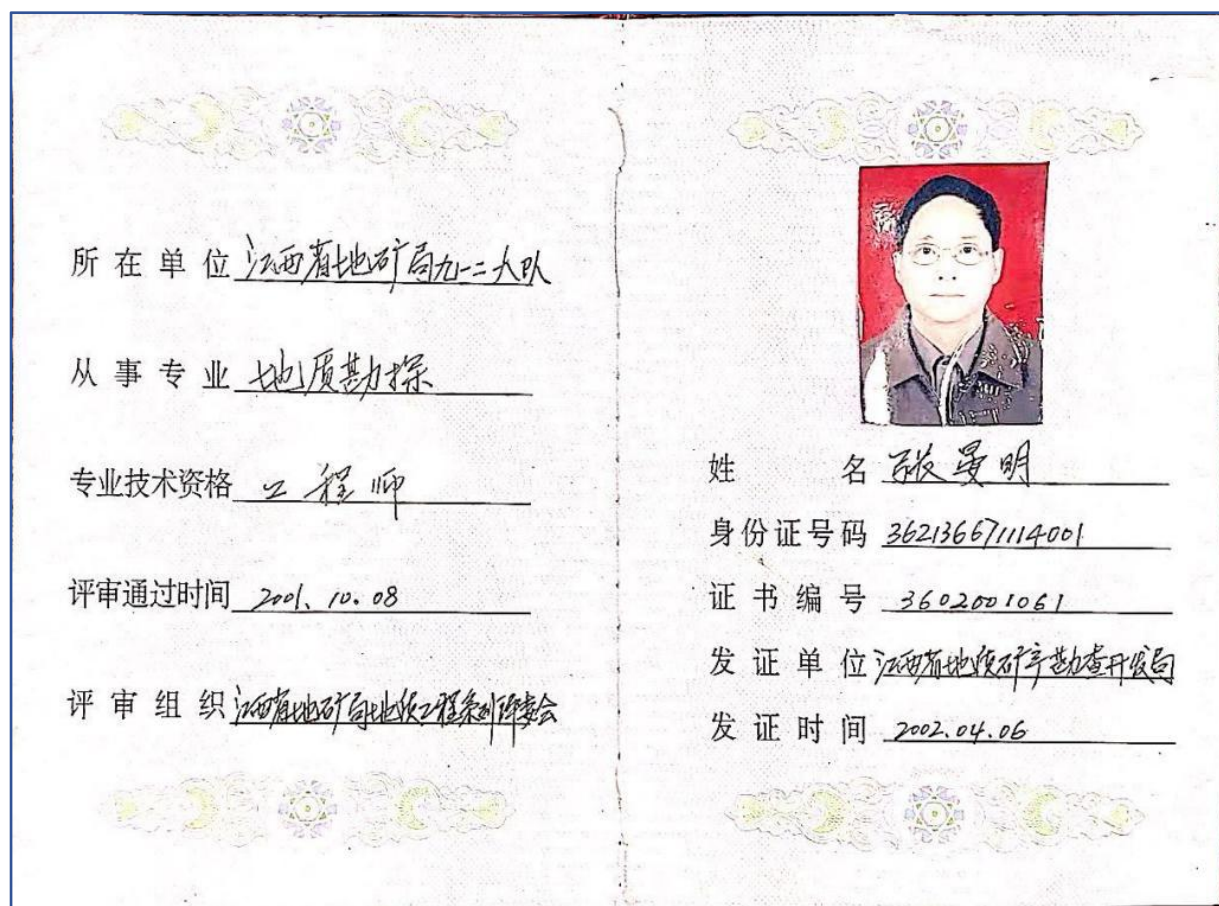 所在单位 江西省地矿局九一二大队
从事专业 地质勘探
专业技术资格 工程师
评审通过时间 2001.10.08
评审组织 江西省地矿局地质工程系列评委会
姓名 张曼明
身份证号码 362136671114001
证书编号 3602001061
发证单位 江西省地质矿产勘查开发局
发证时间 2002.04.06